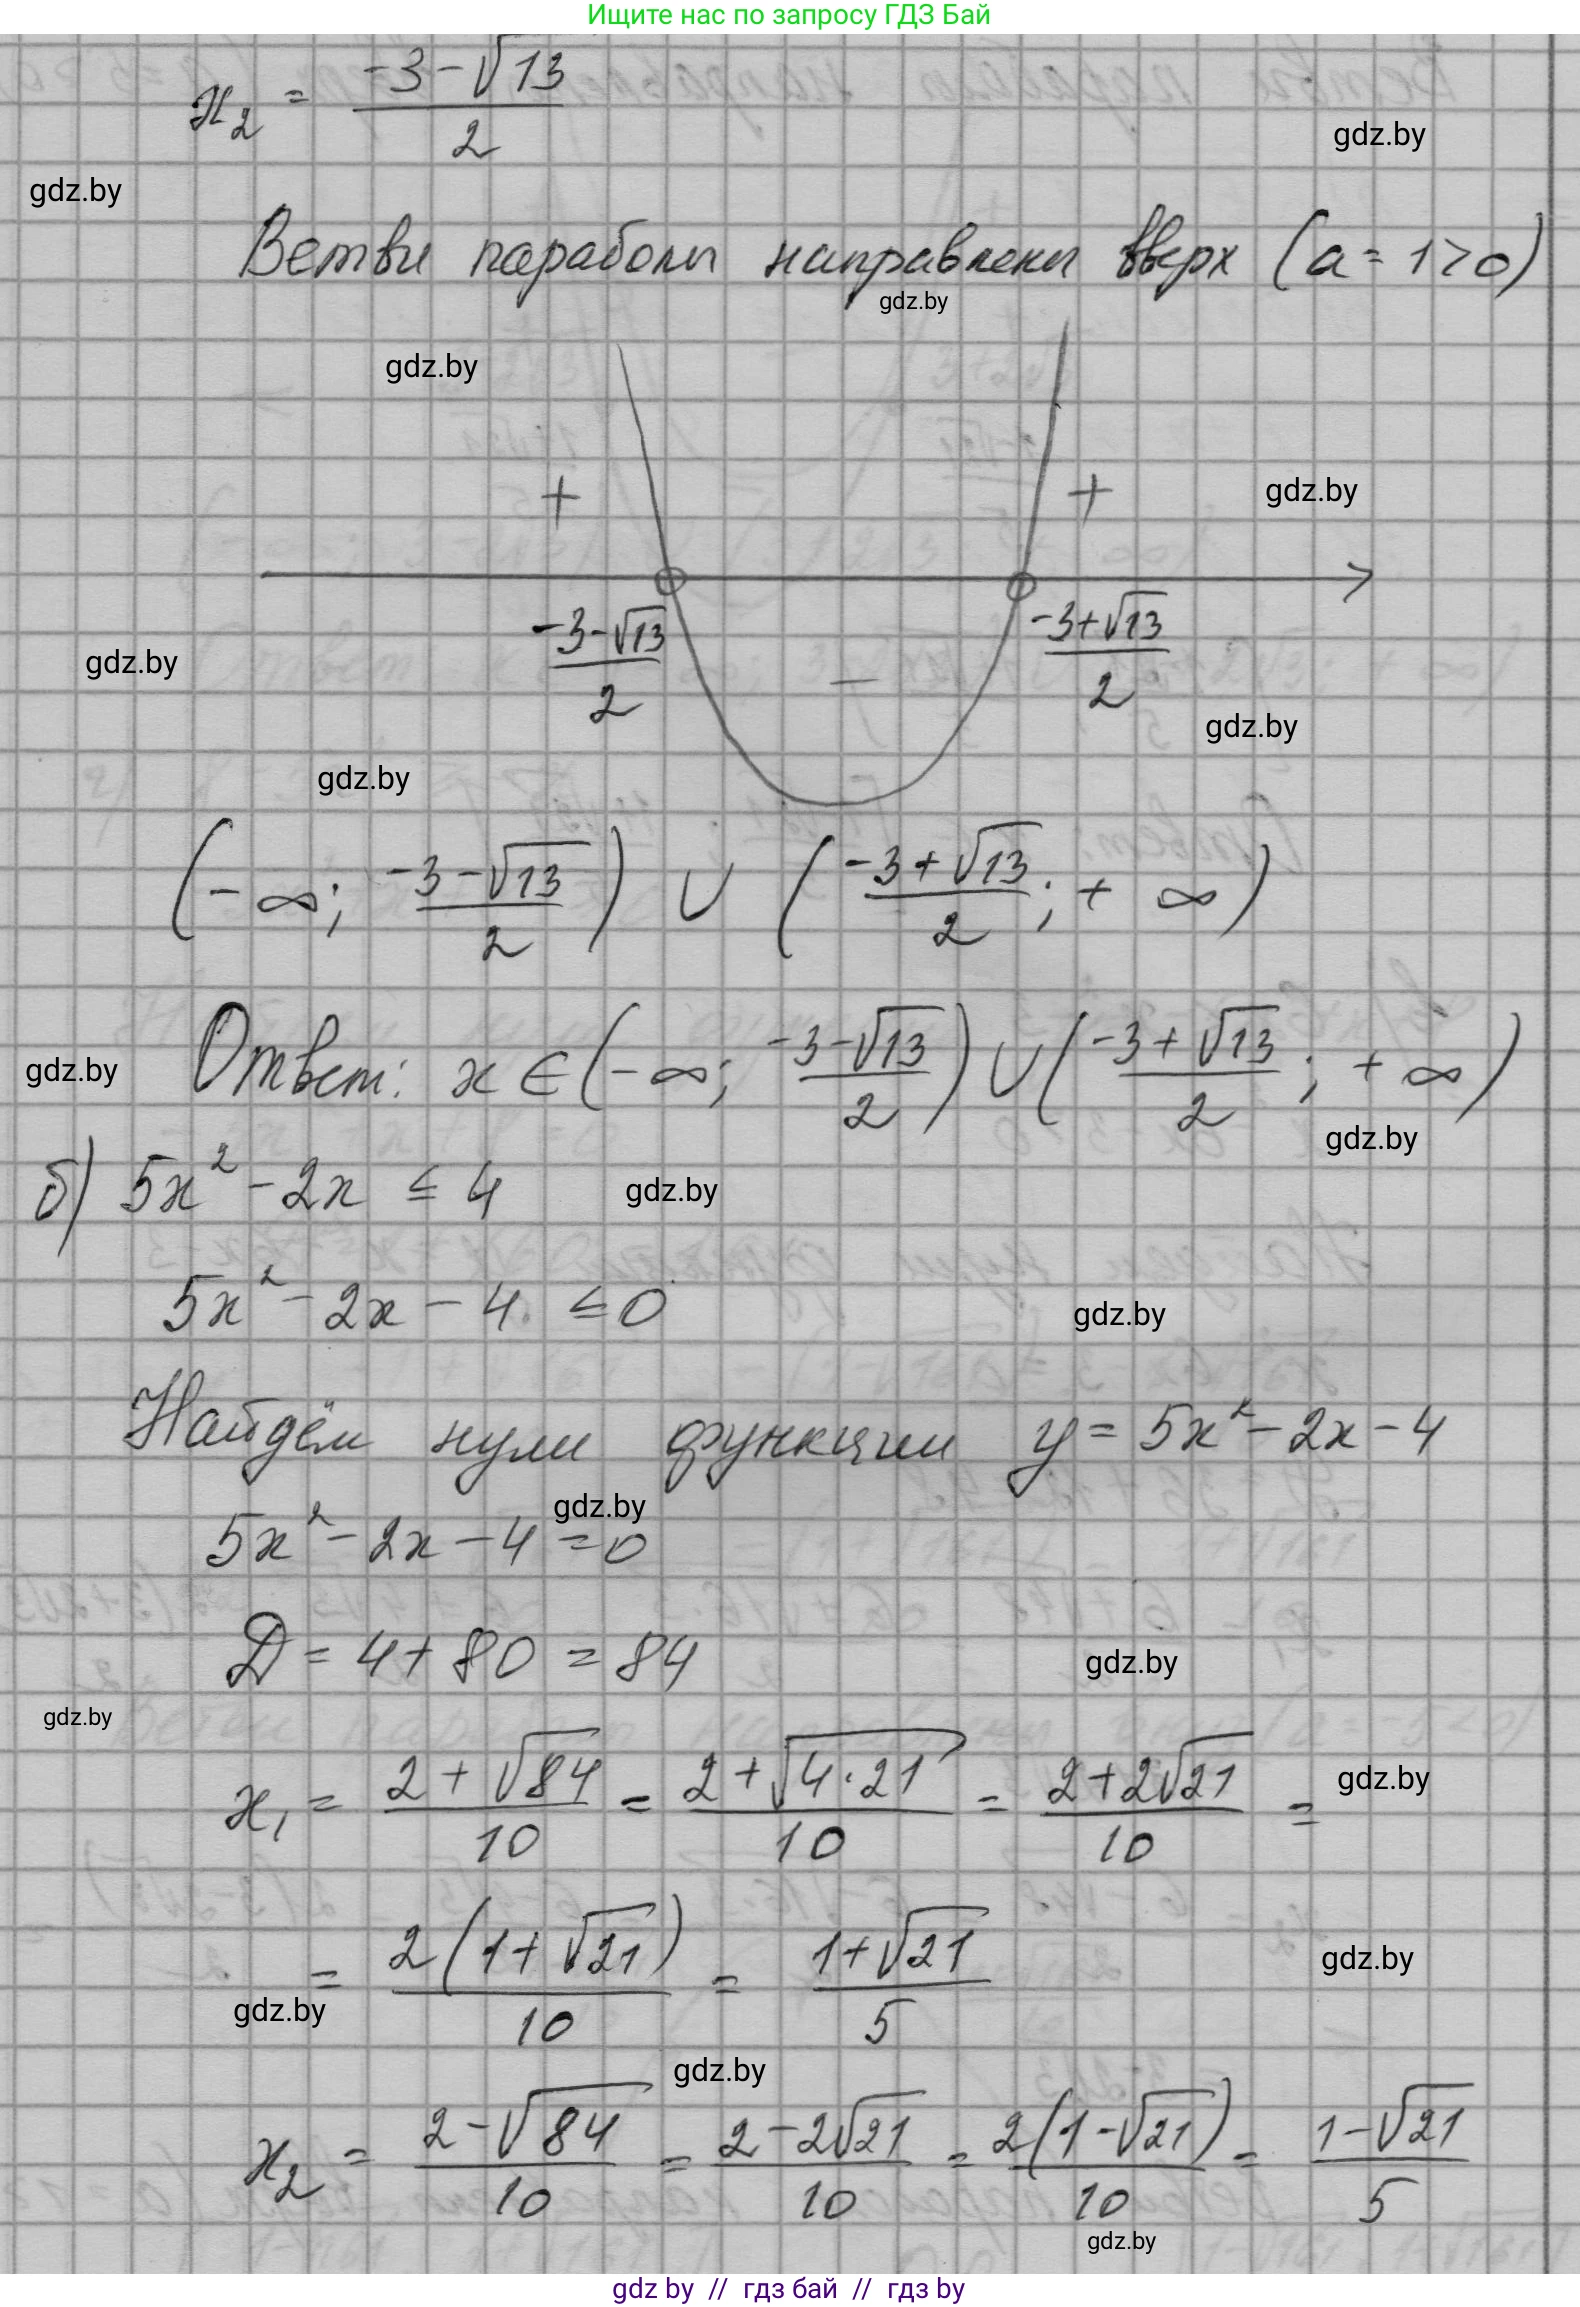 Ищите нас по запросу ГДЗ Бай
x₂ = (-3-√13)/2
gdz.by
gdz.by
Ветви параболы направлены вверх (a = 1 > 0)
gdz.by
gdz.by
+ + gdz.by
(-3-√13)/2 (-3+√13)/2
gdz.by − gdz.by
gdz.by
(-∞; (-3-√13)/2) ∪ ((-3+√13)/2; +∞)
gdz.by Ответ: x ∈ (-∞; (-3-√13)/2) ∪ ((-3+√13)/2; +∞)
gdz.by
б) 5x² - 2x ≤ 4 gdz.by
5x² - 2x - 4 ≤ 0 gdz.by
Найдём нули функции y = 5x² - 2x - 4
gdz.by
5x² - 2x - 4 = 0
D = 4 + 80 = 84 gdz.by
gdz.by
x₁ = (2+√84)/10 = (2+√(4·21))/10 = (2+2√21)/10 = gdz.by
= 2(1+√21)/10 = (1+√21)/5 gdz.by
gdz.by
gdz.by
x₂ = (2-√84)/10 = (2-2√21)/10 = 2(1-√21)/10 = (1-√21)/5
gdz.by
gdz by // гдз бай // гдз by